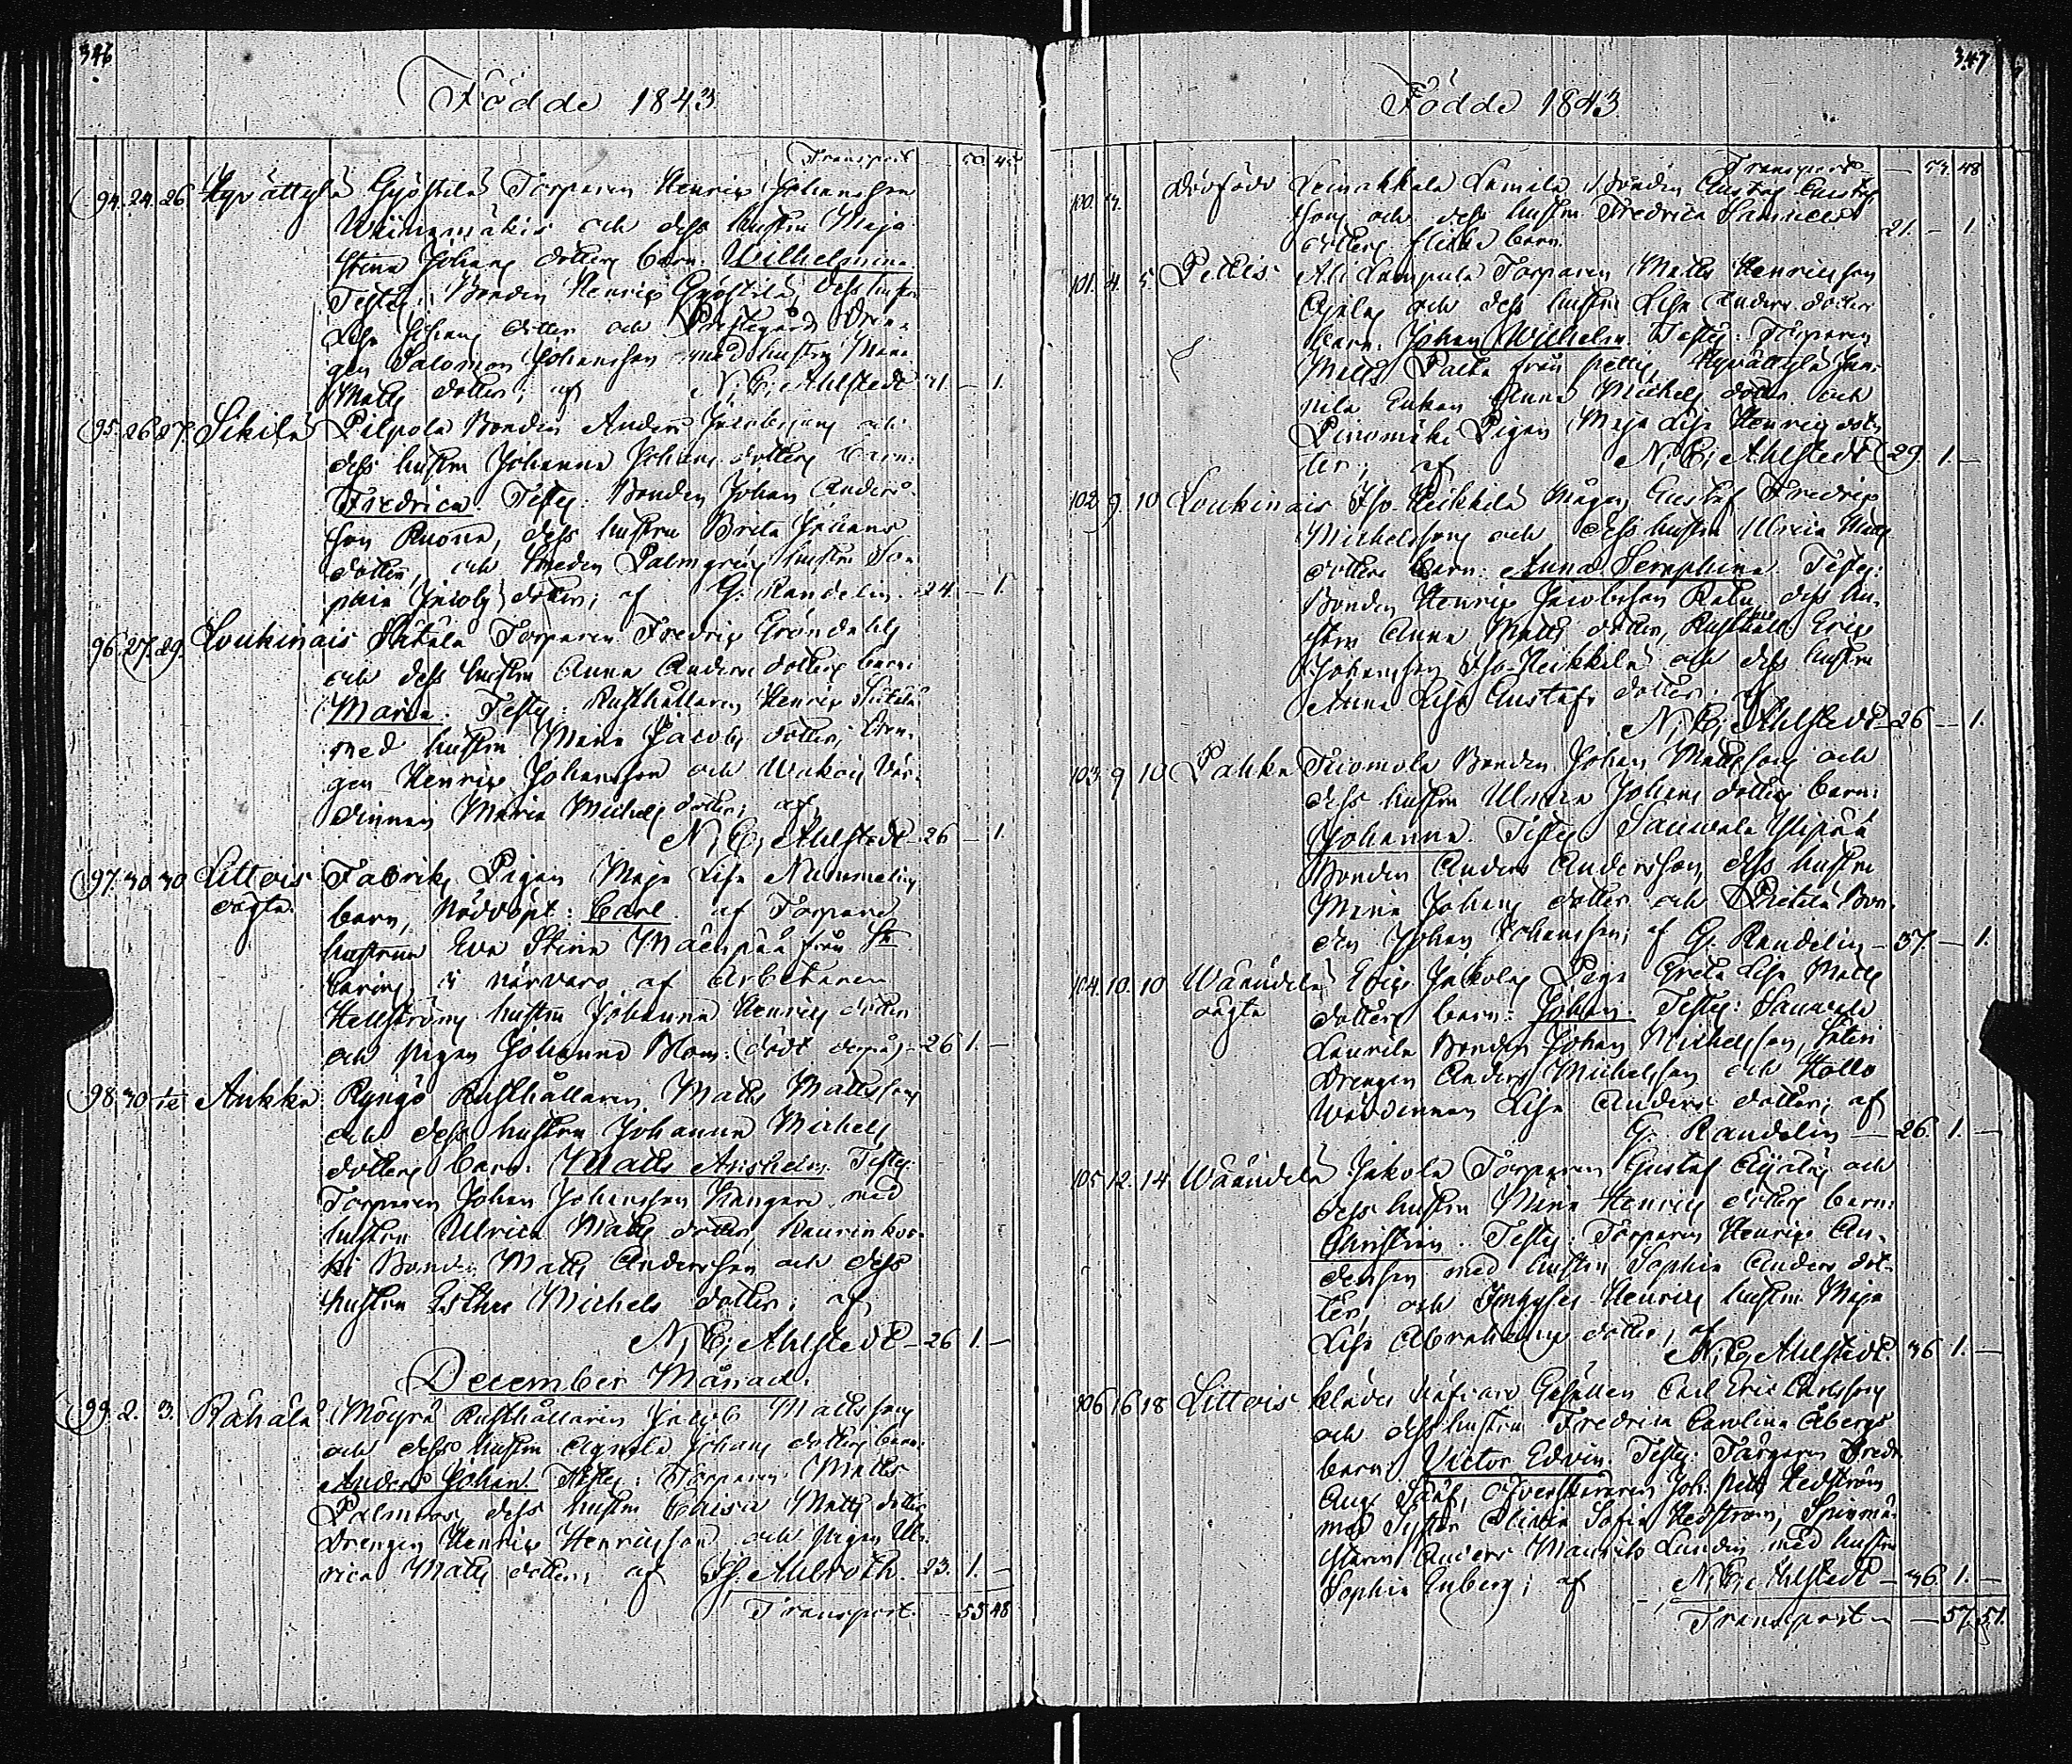 346
Födde 1843
Transport 50. 45
94. 24. 26 Hyvättylä Gjöstilä Torparen Henrix Johansson
Wiinamäkis och dess hustru Maja
Stina Johans dotters barn: Wilhelmina
Testes: Bonden Henrix Gjöstilä, dess hustru
Lisa Johans dotter och Prestegårds Drän-
gen Salomon Johansson med hustru Maria
Matts dotter; af N. E. Ahlstedt 31 – 1.
95. 26. 27. Sikilä Pilpola Bonden Anders Jacobssons och
dess hustru Johanna Johans dotters barn:
Fredrica. Testes: Bonden Johan Anders-
son Ruona, dess hustru Brita Johans
dotter, och Smeden Palmgrens hustru So-
phia Jacobs dotter; af G. Randelin. 24. – 1.
96. 27. 29. Loukinais Säkälä Torparen Fredrix Gröndahls
och dess hustru Anna Anders dotters barn:
Maria. Testes: Rusthållaren Henrix
med hustru Maria Jacobs dotter, Drän-
gen Henrix Johansson och Wakois Vär-
dinnan Maria Michels dotter; af
N. E. Ahlstedt 26 – 1.
97. 30 30 Littois Fabriks Pigan Maja Lisa Nummelins
oägta. barn, Nöddöpt: Carl. af Torpare
hustrun Eva Stina Mäenpää från St
Carins, i närvaro af Arbetaren
Hellströms hustru Johanna Henrics dotter
och pigan Johanna Blom. (dödt derpå) 26 1. –
98. 30 Aukka Ryngö Rusthållaren Matts Mattssons
och dess hustru Johanna Michels
dotters barn: Matts Anshelm Testes:
Torparen Johan Johansson Kangare med
hustru Ulrica Matts dotter,
Bonden Matts Andersson och dess
hustru Esther Michels dotter; af
N. E. Ahlstedt – 26 1. –
December Månad.
99. 2. 3. Rähälä Möyrä Rusthållaren Jacob Mattssons
och dess hustru Agneta Johans dotters barn:
Anders Johan. Testes: Torparen Matts
Palmroos, dess hustru Caisa Matts dotter
Drengen Henrix Henricsson och pigan Ul-
rica Matts dotter; af Ahlroth. 23. 1. –
Transport. – 53 48
347
Födde 1843.
Transport – 53. 48
100. 3. Dödfödd Leinakkala Lamila Bonden Gustaf Gustafs
sons och dess hustru Fredrica
dotters flicka barn. 21. – 1
101. 4. 5 Pettis Ali Lampula Torparen Matts Henricsson
och dess hustru Lisa Anders dotters
barn. Johan Wilhelm. Testes: Torparen
Matts från Pettis, Hyvättylä
Enkan Anna Michels dotter och
Pinomäki Pigan Maja Lisa Henrics dot-
ter; af N. E. Ahlstedt 29. 1. –
102 9. 10 Loukinais Iso Heikkilä Mågen Gustaf Fredrix
Michelssons och dess hustru Ulrica Matts
dotters barn: Anna Seraphina. Testes:
Bonden Henrix Jacobsson dess hu-
stru Anna Matts dotter, Rusthåll. Erix
Johansson Iso-Heikkilä och dess hustru
Anna Lisa Gustafs dotter.
N. E. Ahlstedt 26 – 1.
103. 9 10 Pahka Tuomola Bonden Johan Mattssons och
dess hustru Ulrica Johans dotters barn:
Johanna. Testes Sauwala Ylipää
Bonden Anders Andersson, dess hustru
Maria Johans dotter och Prihtilä Bon-
den Johan Johansson; af G. Randelin – 37. – 1.
104. 10. 10 Wäänälä Erix Jakolas Piga Greta Lisa Matts
oägta dotters barn: Johan. Testes: Sauwala
Laurila Bonden Johan Michelsson,
Drengen Anders Michelsson och Hallo
Wärdinnan Lisa Anders dotter; af
G. Randelin – 26. 1. –
105 12. 14 Wäänälä Jakola Torparen Gustaf och
dess hustru Maria Henrics dotters barn:
Christian. Testes: Torparen Henrix An-
dersson med hustru Sophia Anders dot-
ter, och Henrics hustru Maja
Lisa Abrahams dotter; af
N. E. Ahlstedt. 36 1. –
106 16 18 Littois Klädes Gesällen Carl Eric Carlssons
och dess hustru Fredrica Carolina Åbergs
barn: Victor Edvin. Testes: Färgaren Fredr
Aug. Johan Petter Hedström
med Syster Olivia Sofia Hedström, Spinmä-
staren Anders Maurits Lundin med hustru
Sophia Enberg; af N. E. Ahlstedt – 36. 1. –
Transport – 57. 51.